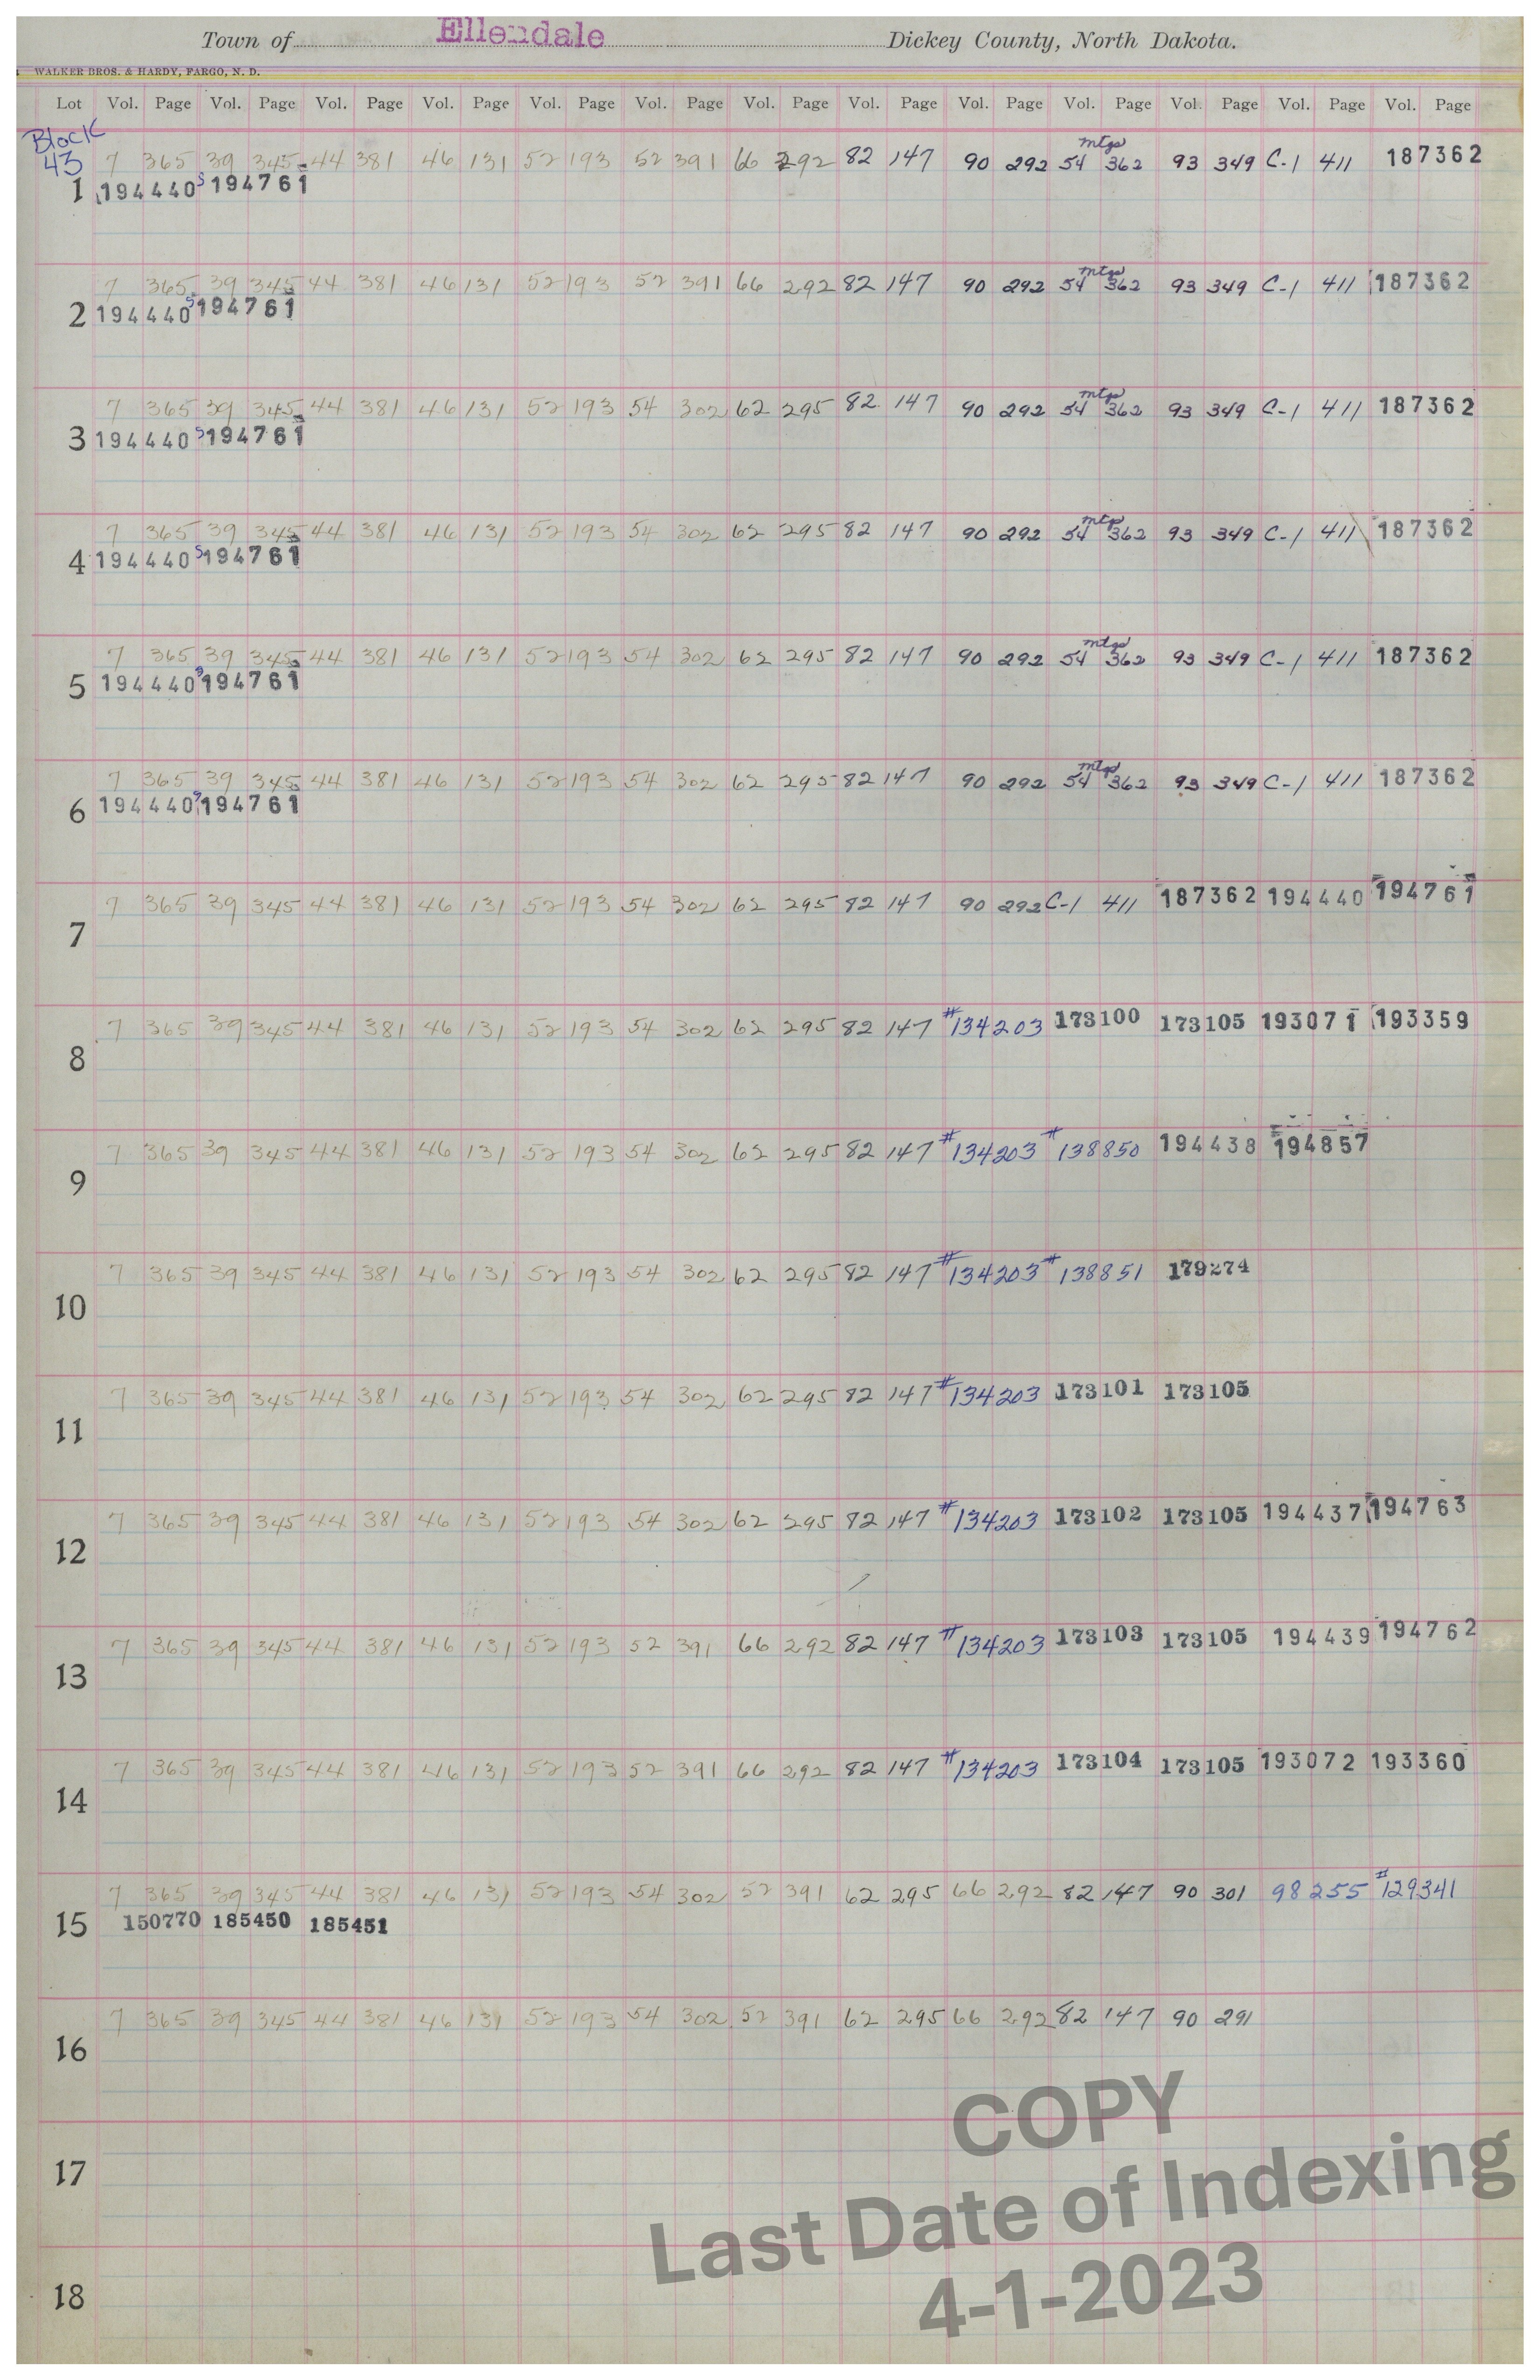 Town of Ellendale Dickey County, North Dakota.
WALKER BROS. & HARDY, FARGO, N. D.
Lot Vol. Page Vol. Page Vol. Page Vol. Page Vol. Page Vol. Page Vol. Page Vol. Page Vol. Page Vol. Page Vol. Page Vol. Page Vol. Page
Block
43
mtgs
7 365 39 345 44 381 46 131 52 193 52 391 66 292 82 147 90 292 54 362 93 349 C-1 411 187362
1 194440 s 194761
mtgs
7 365 39 345 44 381 46 131 52 193 52 391 66 292 82 147 90 292 54 362 93 349 C-1 411 187362
2 194440 s 194761
mtgs
7 365 39 345 44 381 46 131 52 193 54 302 62 295 82 147 90 292 54 362 93 349 C-1 411 187362
3 194440 s 194761
mtgs
7 365 39 345 44 381 46 131 52 193 54 302 62 295 82 147 90 292 54 362 93 349 C-1 411 187362
4 194440 s 194761
mtgs
7 365 39 345 44 381 46 131 52 193 54 302 62 295 82 147 90 292 54 362 93 349 C-1 411 187362
5 194440 s 194761
mtgs
7 365 39 345 44 381 46 131 52 193 54 302 62 295 82 147 90 292 54 362 93 349 C-1 411 187362
6 194440 s 194761
7 365 39 345 44 381 46 131 52 193 54 302 62 295 82 147 90 292 C-1 411 187362 194440 194761
7
7 365 39 345 44 381 46 131 52 193 54 302 62 295 82 147 #134203 173100 173105 193071 193359
8
7 365 39 345 44 381 46 131 52 193 54 302 62 295 82 147 #134203 #138850 194438 194857
9
7 365 39 345 44 381 46 131 52 193 54 302 62 295 82 147 #134203 #138851 179274
10
7 365 39 345 44 381 46 131 52 193 54 302 62 295 82 147 #134203 173101 173105
11
7 365 39 345 44 381 46 131 52 193 54 302 62 295 82 147 #134203 173102 173105 194437 194763
12
7 365 39 345 44 381 46 131 52 193 52 391 66 292 82 147 #134203 173103 173105 194439 194762
13
7 365 39 345 44 381 46 131 52 193 52 391 66 292 82 147 #134203 173104 173105 193072 193360
14
7 365 39 345 44 381 46 131 52 193 54 302 52 391 62 295 66 292 82 147 90 301 98 255 #129341
15 150770 185450 185451
7 365 39 345 44 381 46 131 52 193 54 302 52 391 62 295 66 292 82 147 90 291
16
17
18
COPY
Last Date of Indexing
4-1-2023